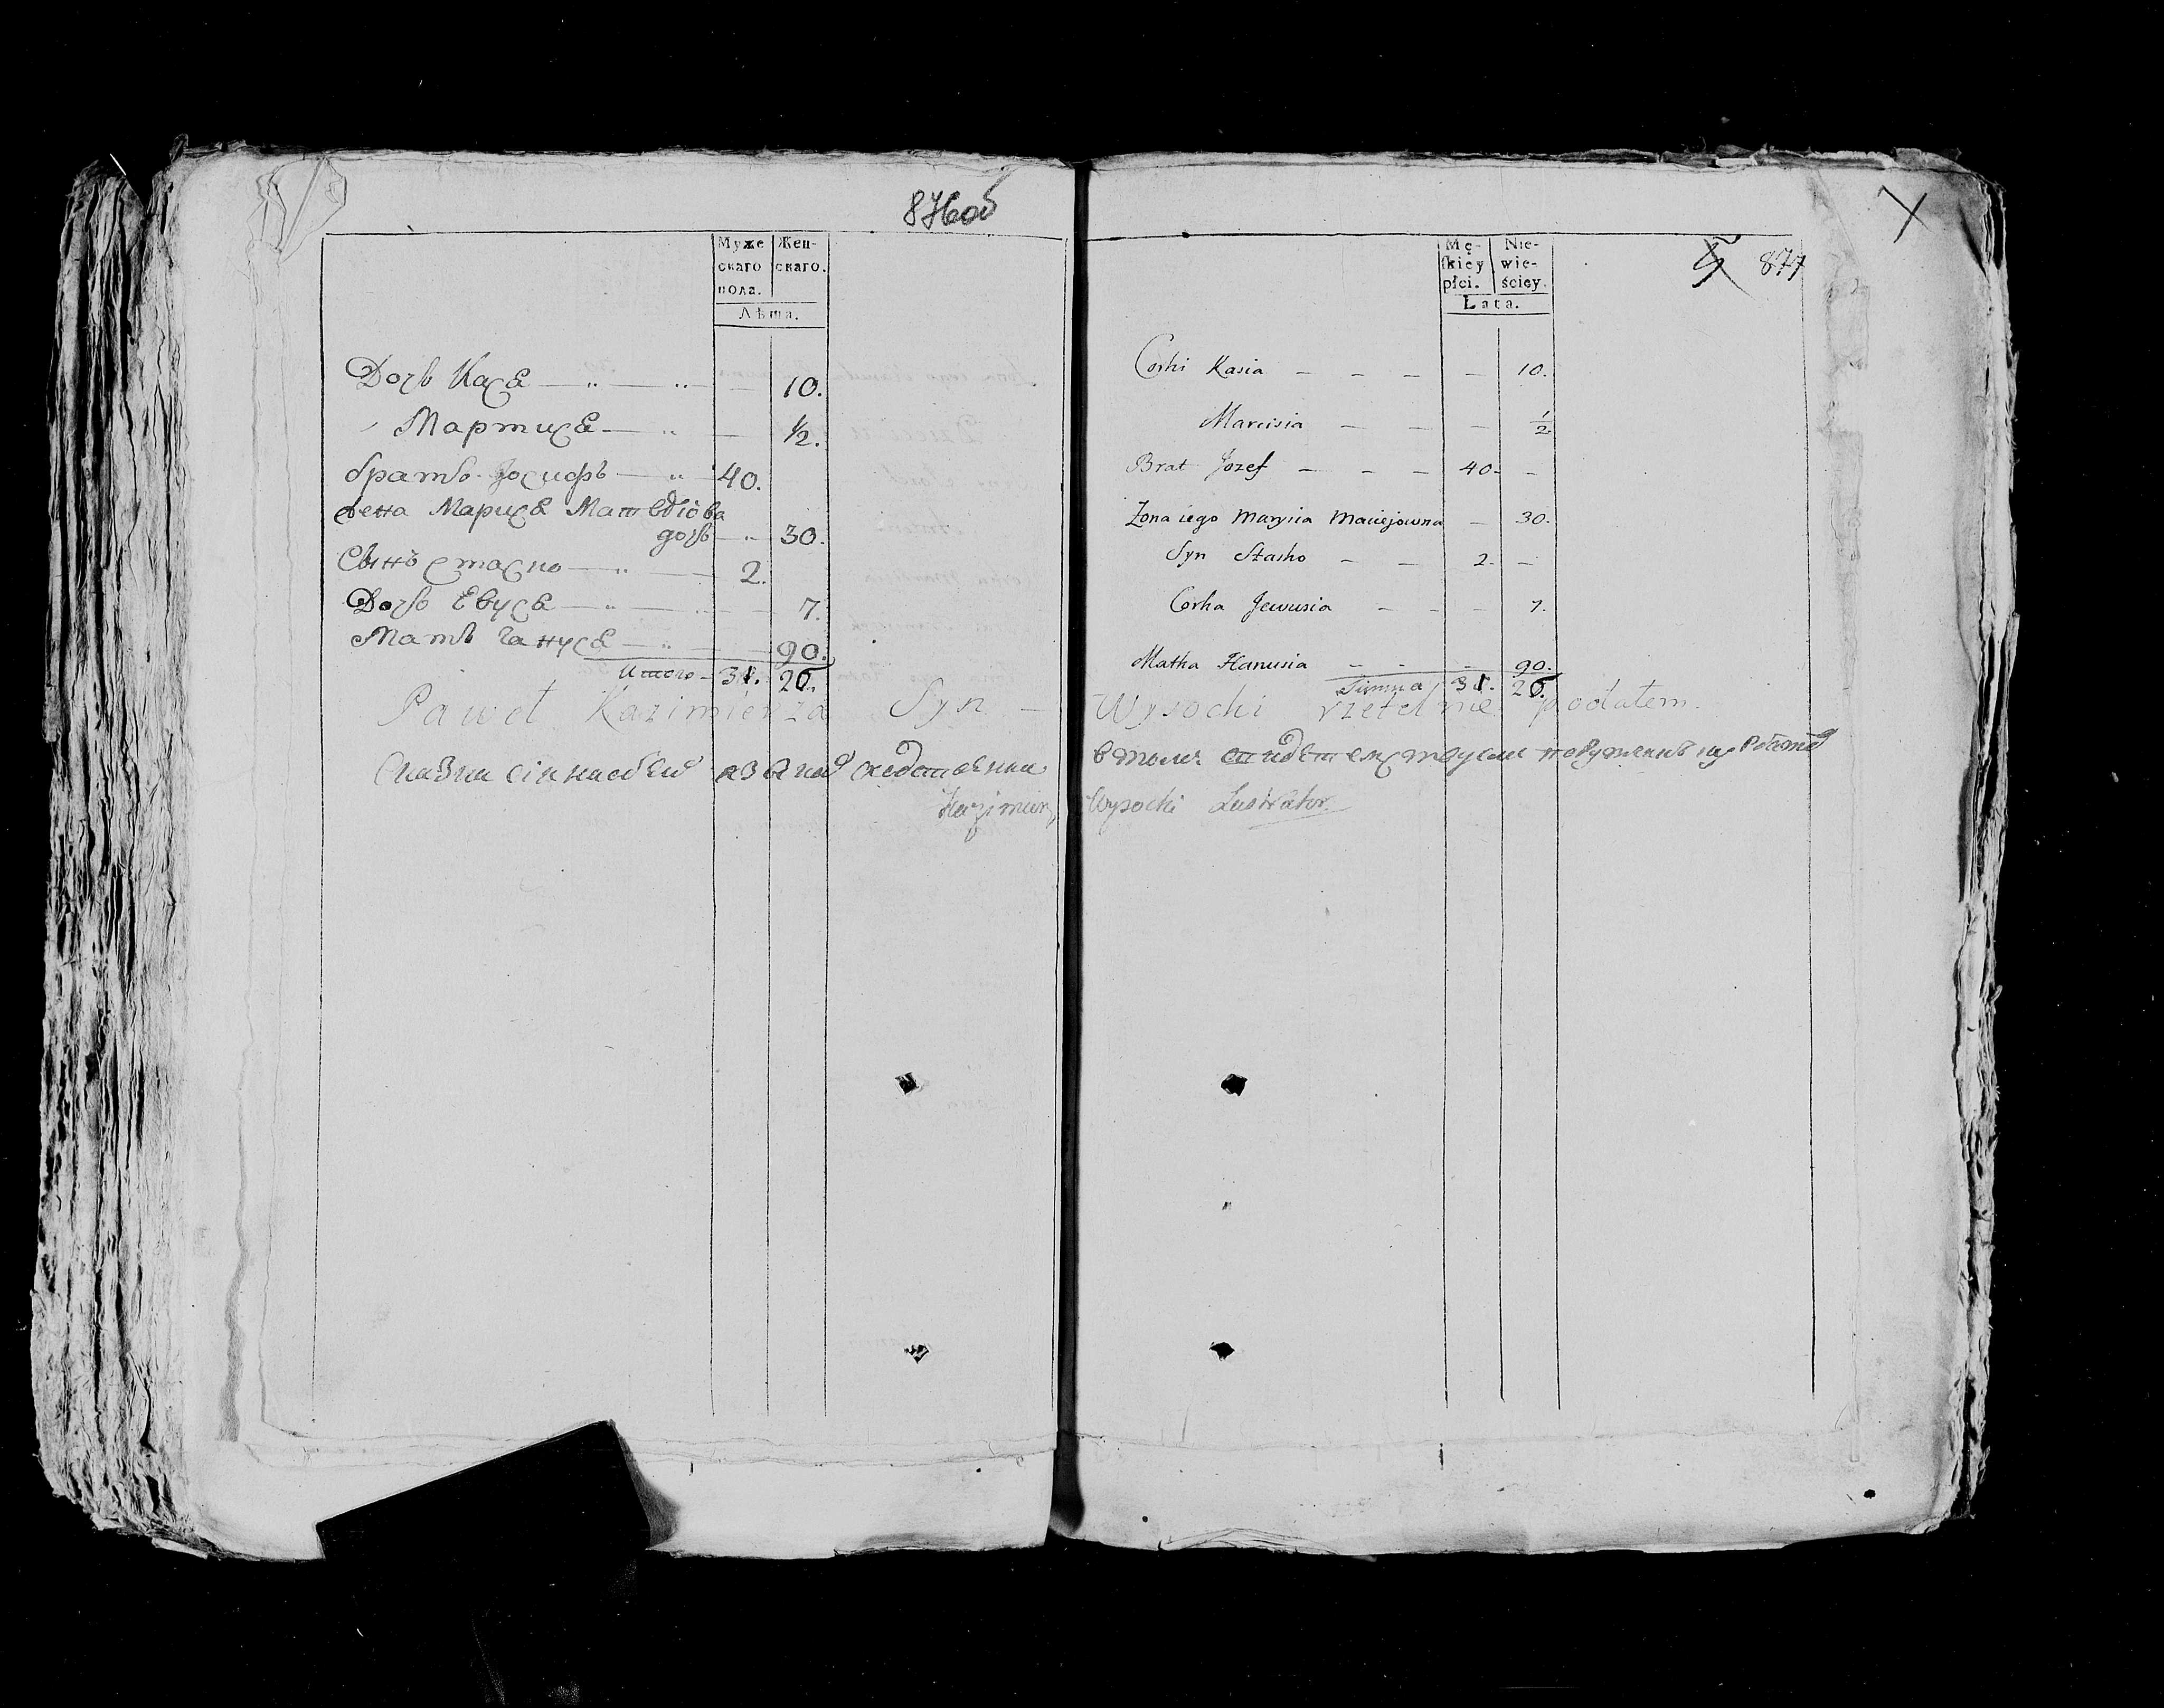 876об
Муже Жен-
скаго скаго.
пола.
Лѣта.
Дочь Кася 10.
Марцися ½.
братъ Іосифъ 40.
жена Марися Матвѣіова
дочь 30.
Сынъ Стасько 2.
Дочь Евуся 7.
Мать Гануся 90.
Итого 31. 26.
Paweł Kazimierza Syn –
877
Mę- Nie-
skiey wie-
płci. ściey.
Lata.
Corki Kasia – – – – 10.
Marcisia – – – ½
Brat Jozef – – – 40. –
Zona iego Marysia Maciejowna – 30.
Syn Stasko – – 2. –
Corka Jewusia – – – 7.
Matka Hanusia – – – 90.
Summa 31. 26.
Wysocki rzetelnie podałem.
Kazimierz Wysocki Lustrator